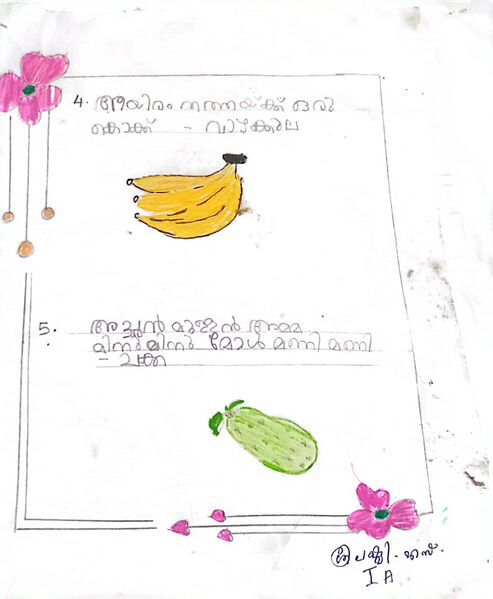 4. ആയിരം തത്തയ്ക്ക് ഒരു
കൊക്ക് - വാഴക്കുല
5. അച്ഛൻ മുള്ളൻ അമ്മ
മിനുമിനു മോൾ മണി മണി
- ചക്ക
I A